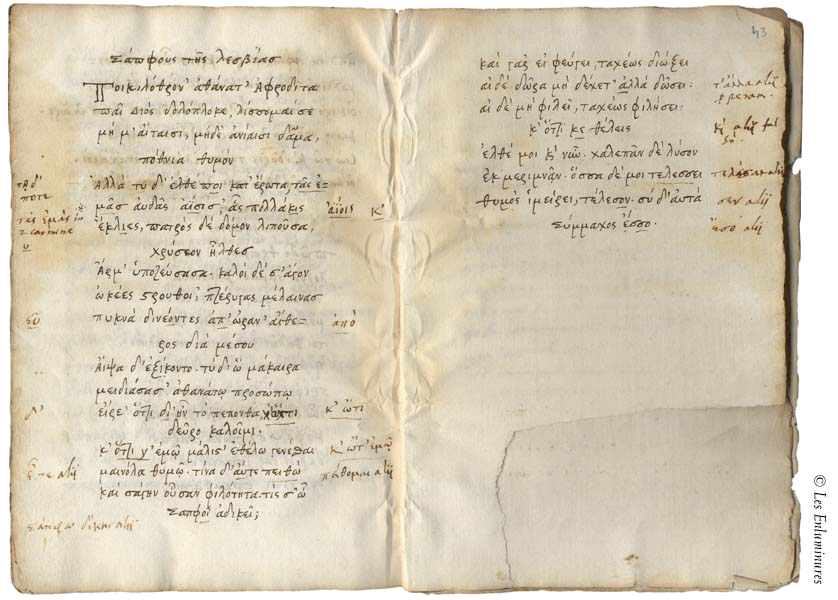 Σάπφους τῆς λεσβίας
Ποικιλόθρον' ἀθάνατ' Ἀφροδίτα
παῖ Διὸς δολόπλοκε, λίσσομαί σε
μή μ' ἄταισι, μηδὲ ἀνίαισι δάμα,
πότνια θυμόν
Ἀλλὰ τυ δ' ἐλθέ ποι κατ' ἔρωτα τᾶς ἐ-
μᾶς αὐδᾶς ἀΐσις, ἃς πολλάκις
ἔκλιες, πατρὸς δὲ δόμον λιποῦσα,
χρύσεον ἦλθες
Ἅρμ' ὑποζεύσασα. καλοὶ δέ σ' ἆγον
ὠκέες στρουθοὶ, πτέρυγας μέλαινας
πυκνὰ δινέοντες ἀπ' ὠραν' αἰθέ-
ρος διὰ μέσου
Αἶψα δ' ἐξίκοντο. τὺ δ' ὦ μάκαιρα
μειδιάσασ' ἀθανάτῳ προσώπῳ
εἴρε' ὅττι δ' ἦν τὸ πέπονθα,
δεῦρο καλοῖμι.
κ' ὅττι γ' ἐμῷ μάλις' ἐθέλω γενέσθαι
μαινόλα θυμῷ. τίνα δ' αὖτε πειθὼ
καὶ σαγην οὖσαν φιλότητα. τίς σ' ὦ
Σαπφοῖ ἀδικεῖ;
τὸ δ'
ποτε
τᾶς ἐμᾶς
carmine
υ
ἀΐοις
κ'
ευ
ἀπὸ
κ' ὥτι
κ' ὥτ' ἐμῷ
τε alij
alij
δίκην alij
43
καὶ γὰς εἰ φεύγει, ταχέως διώξει
αἰ δὲ δῶρα μὴ δέχετ' ἀλλὰ δώσει:
αἰ δὲ μὴ φιλεῖ, ταχέως φιλήσει:
κ' ὅττι κε θέλεις
Ἐλθέ μοι κ' νῶ. χαλεπᾶν δὲ λῦσον
ἐκ μεριμνᾶν. ὅσσα δέ μοι τελέσσει
θυμὸς ἱμείρει, τέλεσον. σὺ δ' αὐτὰ
σύμμαχος ἔσσο.
alij
alij
alij
alij
alij
© Les Enluminures